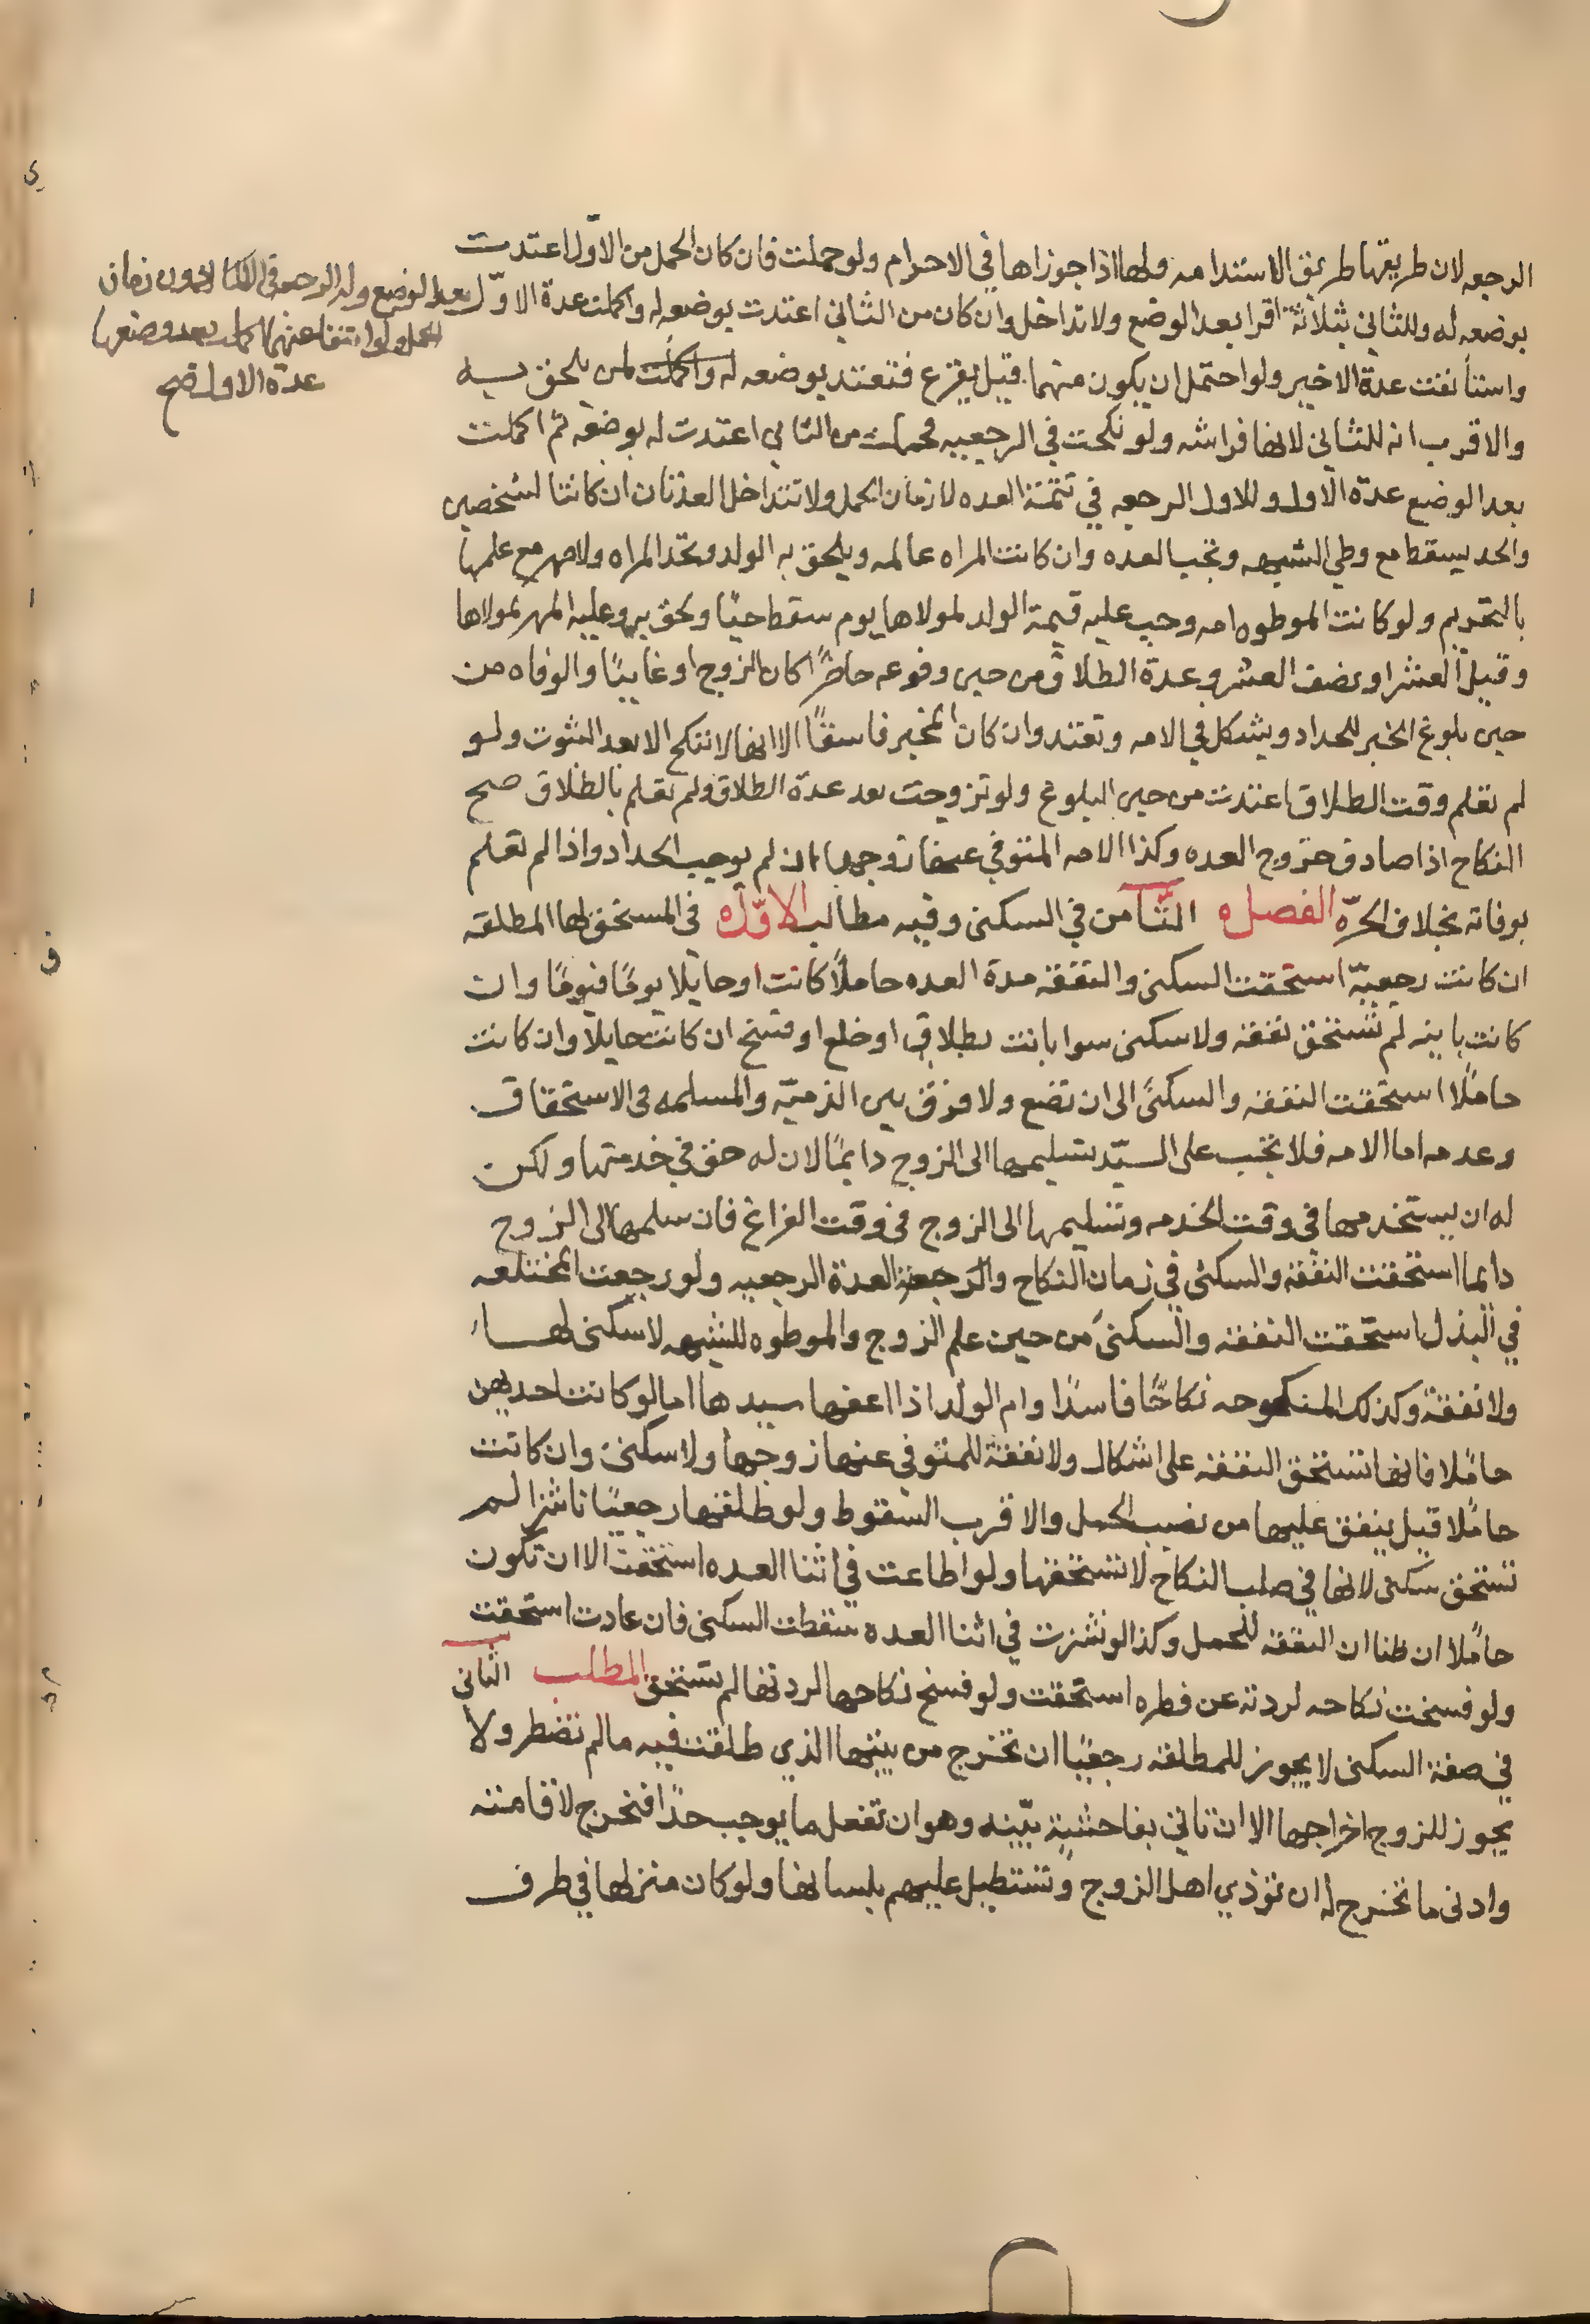 الرجعه لان طريقها طريق الاستدامه ولهذا اذا جوزناها في الاحرام ولو حملت فان كان الحمل من الاوّل اعتدت
بوضعه له وللثاني بثلاثة اقرا بعد الوضع ولا تداخل وان كان من الثاني اعتدت بوضعه له واكملت عدة الاوّل
بعد الوضع وله الرجعه في الاكمال دون زمان
الحمل ولو انتفا عنهما اكملت بعد وضعها
عدة الاول صح
واستأنفت عدة الاخير ولو احتمل ان يكون منهما قيل يقرع فتعتد بوضعه له واكملت لمن يلحق به
والاقرب انه للثاني لانها فراشه ولو نكحت في الرجعيه فحملت من الثاني اعتدت له بوضعه ثم اكملت
بعد الوضع عدّة الاول وللاول الرجعه في تتمة العده لا زمان الحمل ولا تتداخل العدتان ان كانتا لشخصين
والحد يسقط مع وطي الشبهه وتجب العده وان كانت المراه عالمه ويلحق به الولد وتحد المراه ولا مهر مع علمها
بالتحريم ولو كانت الموطوه امه وجب عليه قيمة الولد لمولاها يوم سقط حيًا ولحق به وعليه المهر لمولاها
وقيل العشر او نصف العشر وعدة الطلاق من حين وقوعه حاضرًا كان الزوج او غايبًا والوفاه من
حين بلوغ الخبر للحداد ويشكل في الامه وتعتد وان كان المخبر فاسقًا الا انها لا تنكح الا بعد الثبوت ولو
لم تعلم وقت الطلاق اعتدت من حين البلوغ ولو تزوجت بعد عدة الطلاق ولم تعلم بالطلاق صح
النكاح اذا صادف خروج العده وكذا الامه المتوفي عنها زوجها ان لم نوجب الحداد واذا لم تعلم
بوفاته بخلاف الحرّه الفصل الثامن في السكنى وفيه مطالب الاوّل في المستحق لها المطلقه
ان كانت رجعيّة استحقت السكنى والنفقه مدة العده حاملًا كانت او حايلا يومًا فيومًا وان
كانت باينه لم تستحق نفقه ولا سكنى سوا بانت بطلاق او خلع او فسخ ان كانت حايلا وان كانت
حاملًا استحقت النفقه والسكنى الى ان تضع ولا فرق بين الذميّه والمسلمه في الاستحقاق
وعدمه اما الامه فلا تجب على السيّد تسليمها الى الزوج دايمًا لان له حق في خدمتها ولكن
له ان يستخدمها في وقت الخدمه وتسليمها الى الزوج في وقت الفراغ فان سلمها الى الزوج
دايما استحقت النفقه والسكنى في زمان النكاح والرجعة العدة الرجعيه ولو رجعت المختلعه
في البذل استحقت النفقه والسكنى من حين علم الزوج والموطوه للشبهه لا سكنى لها
ولا نفقة وكذلك المنكوحه نكاحًا فاسدًا وام الولد اذا اعتقها سيدها اما لو كانت احديهن
حاملا فانها تستحق النفقه على اشكال ولا نفقة للمتوفي عنها زوجها ولا سكنى وان كانت
حاملًا قيل ينفق عليها من نصيب الحمل والاقرب السقوط ولو طلقها رجعيًا ناشزا لم
تستحق سكنى لانها في صلب النكاح لا تستحقها ولو اطاعت في اثنا العده استحقت الا ان تكون
حاملًا ان قلنا ان النفقه للحمل وكذا لو نشزت في اثنا العده سقطت السكنى فان عادت استحقت
ولو فسخت نكاحه لردته عن فطره استحقت ولو فسخ نكاحها لردتها لم تستحق المطلب الثاني
في صفة السكنى لا يجوز للمطلقه رجعيًا ان تخرج من بيتها الذي طلقت فيه ما لم تضطر ولا
يجوز للزوج اخراجها الا ان تاتي بفاحشة بيّنه وهو ان تفعل ما يوجب حدًا فتخرج لاقامته
وادنى ما تخرج له ان تؤذي اهل الزوج وتستطيل عليهم بلسانها ولو كان منزلها في طرف